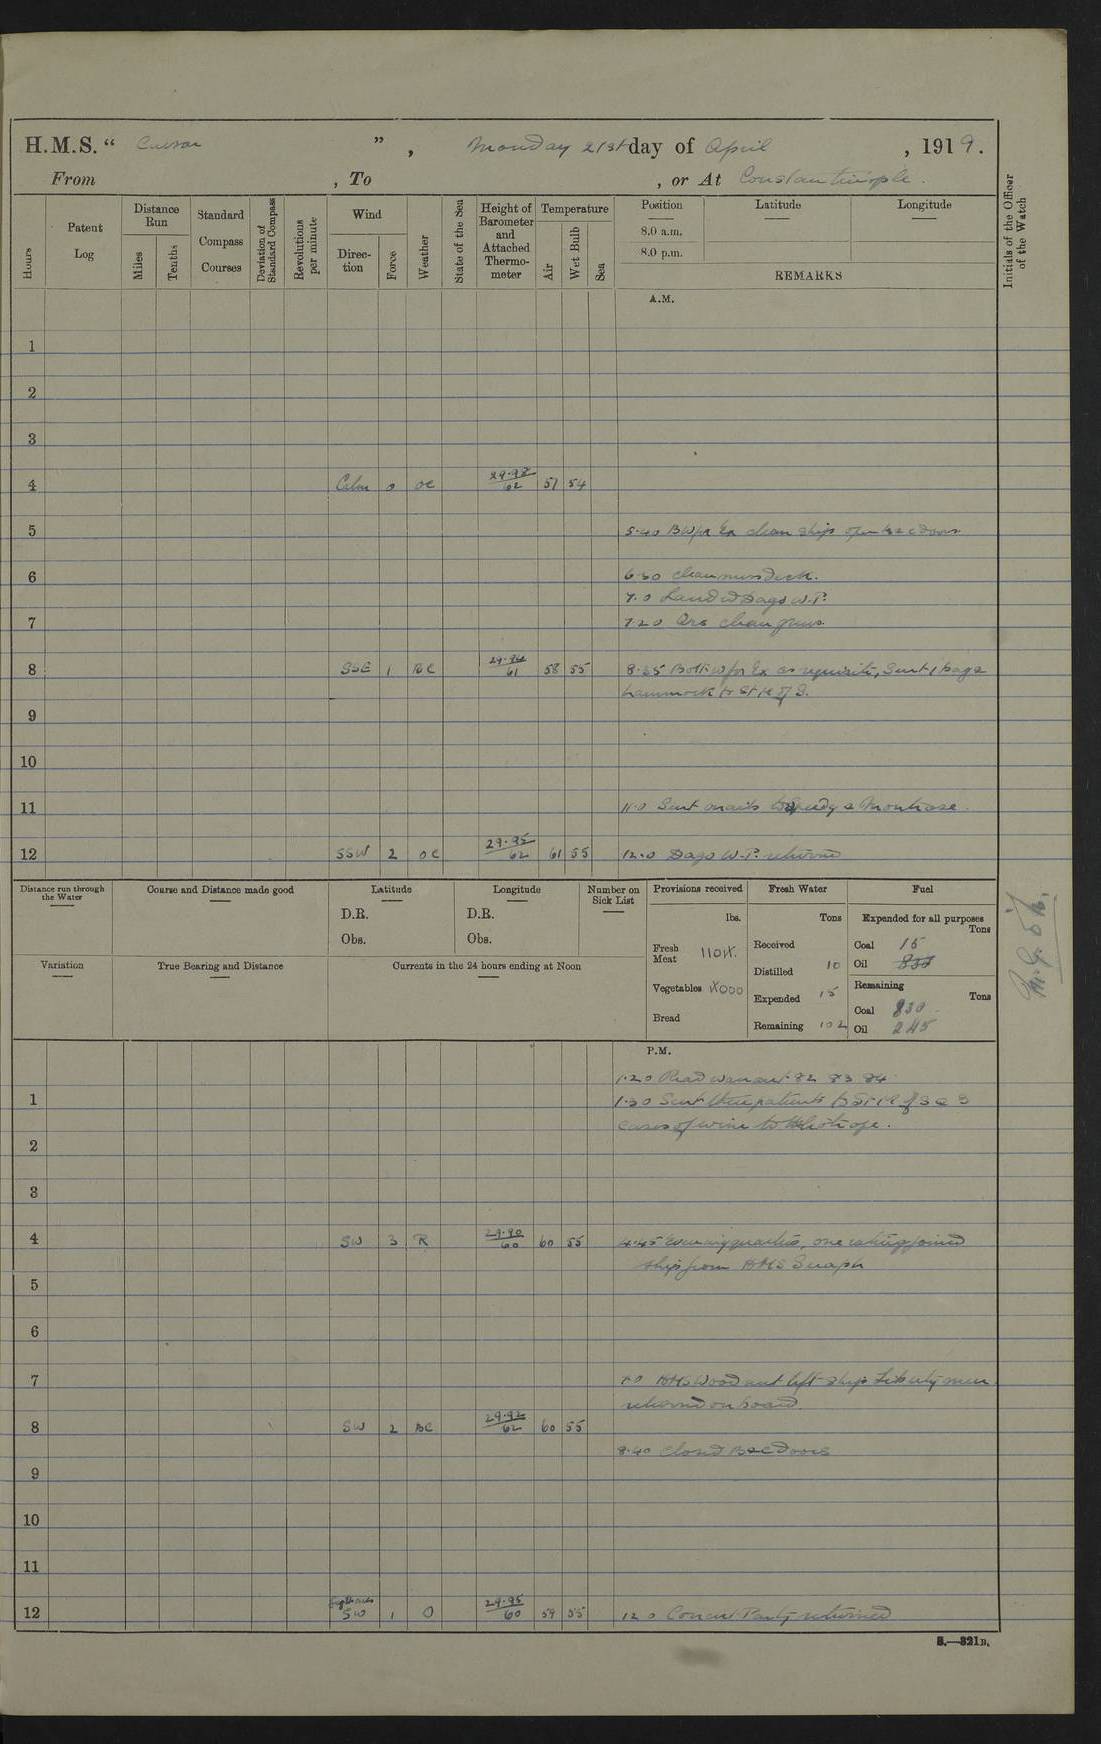 H.M.S. " Caesar ", Monday 21st day of April, 1919.
From , To , or At Constantinople.
Hours
Patent Log
Distance Run
Miles
Tenths
Standard Compass Courses
Deviation of Standard Compass
Revolutions per minute
Wind
Direction
Force
Weather
State of the Sea
Height of Barometer and Attached Thermometer
Temperature
Air
Wet Bulb
Sea
Position
8.0 a.m.
8.0 p.m.
Latitude
Longitude
REMARKS
Initials of the Officer of the Watch
A.M.
1
2
3
4 Calm 0 OC 29.98/62 57 54
5 5.40 clean ship open doors
6 6.30 Clean mess deck.
7.0 Land W Dago W.P.
7 7.20 clean guns
8 SSE 1 BC 61 58 55 8.35 Both w for Ex as requisite, Sent 1 bag &
hammock to St M of S.
9
10
11 11.0 Sent mails to Speedy & Montrose.
12 SSW 2 OC 29.95/62 61 55 12.0 Dago W.P. returned
Distance run through the Water
Course and Distance made good
Latitude
D.R.
Obs.
Longitude
D.R.
Obs.
Number on Sick List
Variation
True Bearing and Distance
Currents in the 24 hours ending at Noon
Provisions received
lbs.
Fresh Meat
Vegetables
Bread
Fresh Water
Tons
Received
Distilled 10
Expended 15
Remaining 102
Fuel
Expended for all purposes
Tons
Coal 15
Oil
Remaining
Tons
Coal 830
Oil 245
P.M.
1.20 Read warrant 82 83 84
1 1.30 Sent three patients to St M of S & 3
cases of wine to Heliotrope.
2
3
4 SW 3 R 29.90/60 60 55 4.45 Evening quarters, one rating joined
ship from HMS Seraph
5
6
7 7.0 HMS Woodnut left ship Liberty men
returned on board.
8 SW 2 BC 29.92/62 60 55
8.40 Closed doors
9
10
11
12 SW 1 O 29.95/60 59 55 12.0 Concert Party returned
S.—321B.